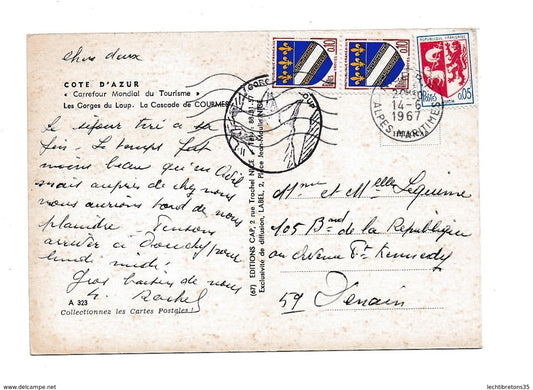 Chers deux
COTE D'AZUR
" Carrefour Mondial du Tourisme "
Les Gorges du Loup. La Cascade de COURMES
Le séjour tire à sa
fin. Le temps fut
moins beau qu'en Avril
mais auprès de chez nous
nous aurions tord de nous
plaindre. Pensons
arriver à pour
lundi midi.
Gros de nous
4. Rachel
A 323
Collectionnez les Cartes Postales !
(67) EDITIONS CAP, 2 rue Trachel NICE
Exclusivité de diffusion, LABEL, 2, Place Jean-Moulin NICE
REPUBLIQUE FRANÇAISE
0,10
0,10
0,05
14-6
1967
ALPES MARITIMES
Mme et Melle Lequime
105 Bard de la République
ou Avenue Pt Kennedy
59 Denain
www.delcampe.net
lechtibretons35